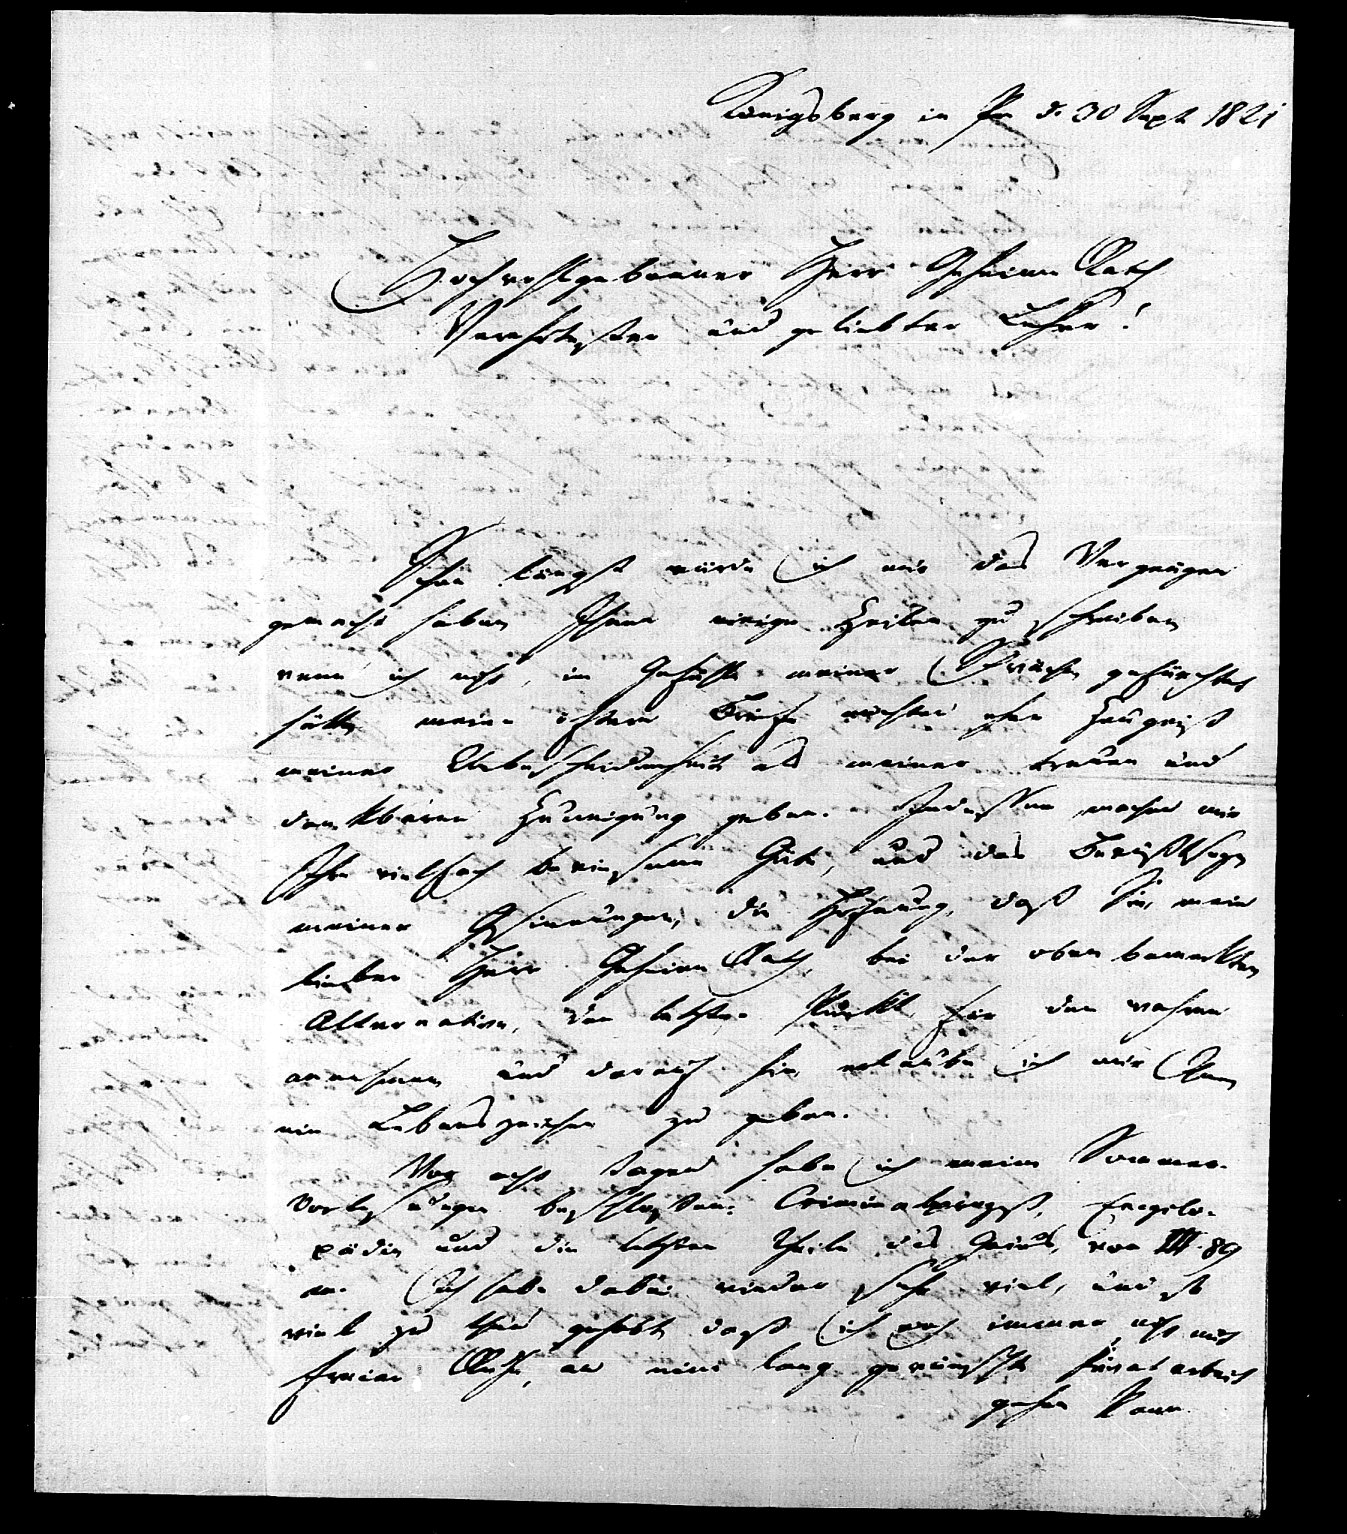 Königsberg in Pr d. 30 Sept 1821
Hochwohlgeborner Herr Geheime Rath
Verehrtester und geliebter Lehrer!
Schon längst würde ich mir das Vergnügen
gemacht haben Ihnen einige Zeilen zu schreiben
wenn ich nicht, im Gefühle meiner Schwäche gefürchtet
hätte meine öftern Briefe möchten eher Zeugniß
meiner Unbescheidenheit als meiner treuen und
dankbaren Zuneigung geben. Indessen machen mir
Ihre vielfach bewiesene Güte, und das Bewußtseyn
meiner Gesinnungen, die Hoffnung, daß Sie, mein
lieber Herr Geheime Rath, bei der oben bemerkten
Alternative, den letzten Punkt für den wahren
annehmen und darauf hin erlaube ich mir Ihnen
ein Lebenszeichen zu geben.
Vor acht Tagen habe ich meine Sommer-
vorlesungen beschlossen: Criminalprozeß, Encyclo-
pädie und die letzten Theile des Gaius, von III. 89
an. Ich habe dabei wieder sehr viel, und so
viel zu thun gehabt daß ich noch immer nicht mit
freier Ruhe, an eine lang gewünschte Privatarbeit
gehen kann